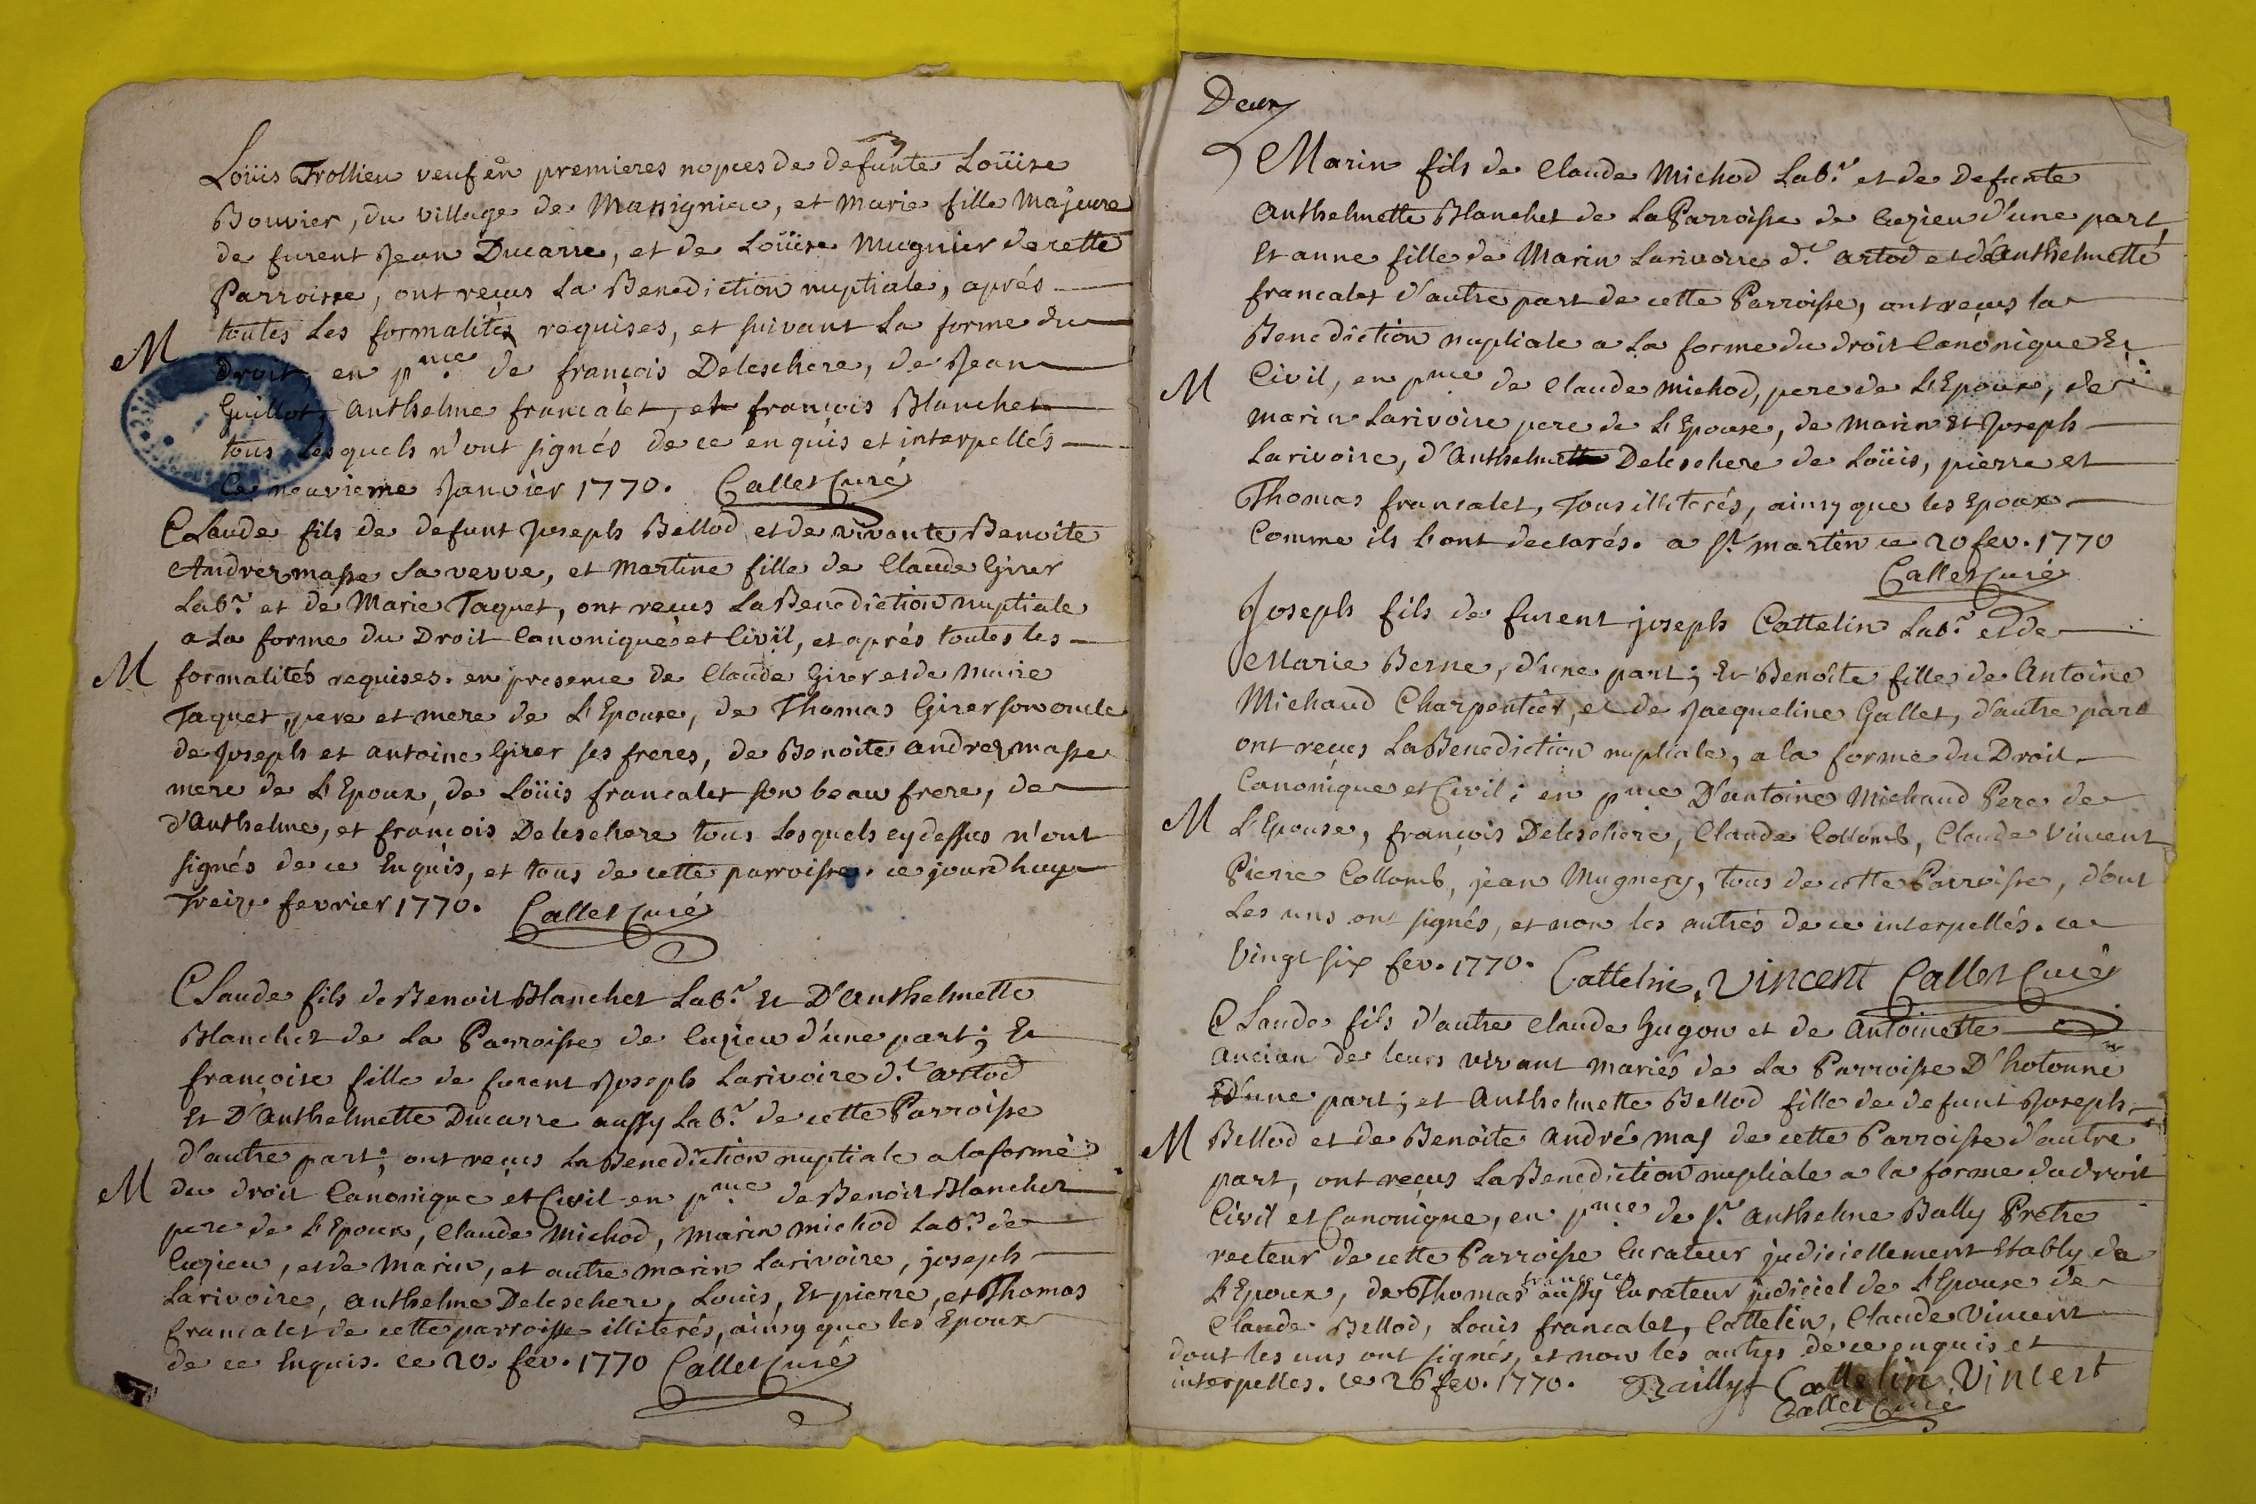 Loüis Trollieu veuf en premieres nopces de defunte Loüise
Bouvier, du village de Massignieu, et Marie fille Majeure
de furent Jean Ducarre, et de Loüise Mugnier de cette
Parroisse, ont reçus La Benediction nuptiale, aprés
toutes Les formalités requises, et suivant La forme du
M
Droit, en pnce de françois Deleschere, de Jean
Guillot, Anthelme francalet, et françois Blanchet
tous Lesquels n'ont signés de ce enquis et interpellés
Ce neuvieme Janvier 1770. Callet Curé
Claude fils de defunt Joseph Bellod et de vivante Benoite
Andrezmasse sa veuve, et Martine fille de Claude Girer
Labr. et de Marie Taquet, ont reçus La Benediction nuptiale
a La forme du Droit Canonique et Civil, et aprés toutes les
M formalités requises. en presence de Claude Girer et de Marie
Taquet, pere et mere de L'Epouse, de Thomas Girer son oncle
de Joseph et antoine Girer ses freres, de Benoite andrezmasse
mere de L'Epoux, de Loüis francalet son beau frere, de
d'Anthelme, et françois Deleschere tous Lesquels cy dessus n'ont
signés de ce Enquis, et tous de cette parroisse. ce jourdhuy
Treize fevrier 1770. Callet Curé
Claude fils de Benoit Blanchet Labr. Et D'Anthelmette
Blanchet de La Parroisse de Cuzieu d'une part; Et
françoise fille de furent Joseph Larivoire dt. artod
Et D'Anthelmette Ducarre aussy Labr. de cette Parroisse
d'autre part; ont reçus La Benediction nuptiale a la forme
M du droit Canonique et Civil en pnce de Benoit Blanchet
pere de L'Epoux, Claude Michod, marin michod Labrs de
Cuzieu, et de Marin, et autre marin Larivoire, joseph
Larivoire, Anthelme Deleschere, Louis, Et pierre, et Thomas
francalet de cette parroisse illiterés, ainsy que les Epoux
de ce Enquis. Ce 20. fev. 1770 Callet Curé
Deux
Marin fils de Claude Michod Labr. et de Defunte
Anthelmette Blanchet de La Parroisse de Cuzieu d'une part,
Et anne fille de Marin Larivoire dt. artod et d'Anthelmette
francalet d'autre part de cette Parroisse, ont reçus la
Benediction nuptiale a La forme du droit Canonique Et
M Civil, en pnce de Claude Michod, pere de L'Epoux, de
marin Larivoire pere de L'Epouse, de marin Et Joseph
Larivoire, d'Anthelme Deleschere de Loüis, pierre et
Thomas francalet, Tous illiterés, ainsy que les Epoux
Comme ils L'ont declarés. a St. martin ce 20 fev. 1770
Callet Curé
Joseph fils de furent joseph Cattelin Labr. et de
Marie Berne, d'une part; Et Benoite fille de Antoine
Michaud Charpentier, et de Jacqueline Gallet, d'autre part
ont reçus La Benediction nuptiale, a la forme du Droit
Canonique et Civil; en pnce D'antoine Michaud Pere de
M L'Epouse, françois Deleschere, Claude Collomb, Claude Vincent
Pierre Collomb, jean Mugnery, tous de cette Parroisse, d'ont
Les uns ont signés, et non les autres de ce interpellés. ce
Vingt six fev. 1770. Cattelin, Vincent Callet Curé
Claude fils d'autre Claude Gugon et de Antoinette
Ancian de leurs vivant mariés de La Parroisse D'hotonne
D'une part; et Anthelmette Bellod fille de defunt Joseph
M Bellod et de Benoite André mas de cette Parroisse d'autre
part, ont reçus La Benediction nuptiale a la forme du droit
Civil et Canonique, en pnce de Sr. Anthelme Bally Prêtre
recteur de cette Parroisse Curateur judiciellement Etably de
L'Epoux, de Thomas aussy Curateur judiciel de L'Epouse de
Claude Bellod, Louis francalet, Cattelin, Claude Vincent
dont les uns ont signés, et non les autres de ce enquis et
interpelles. ce 26 fev. 1770. Bailly Cattelin Vincent
Callet Curé